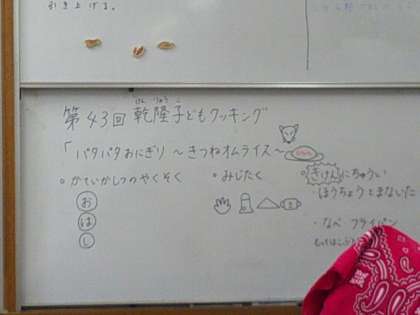 引き上げる。
けんりゅうこ
第43回 乾隆子どもクッキング
「パタパタおにぎり 〜きつねオムライス〜
○かていかしつのやくそく
お
は
し
○みじたく
○きけんにちゅうい
・ほうちょうとまないた
・なべ フライパン